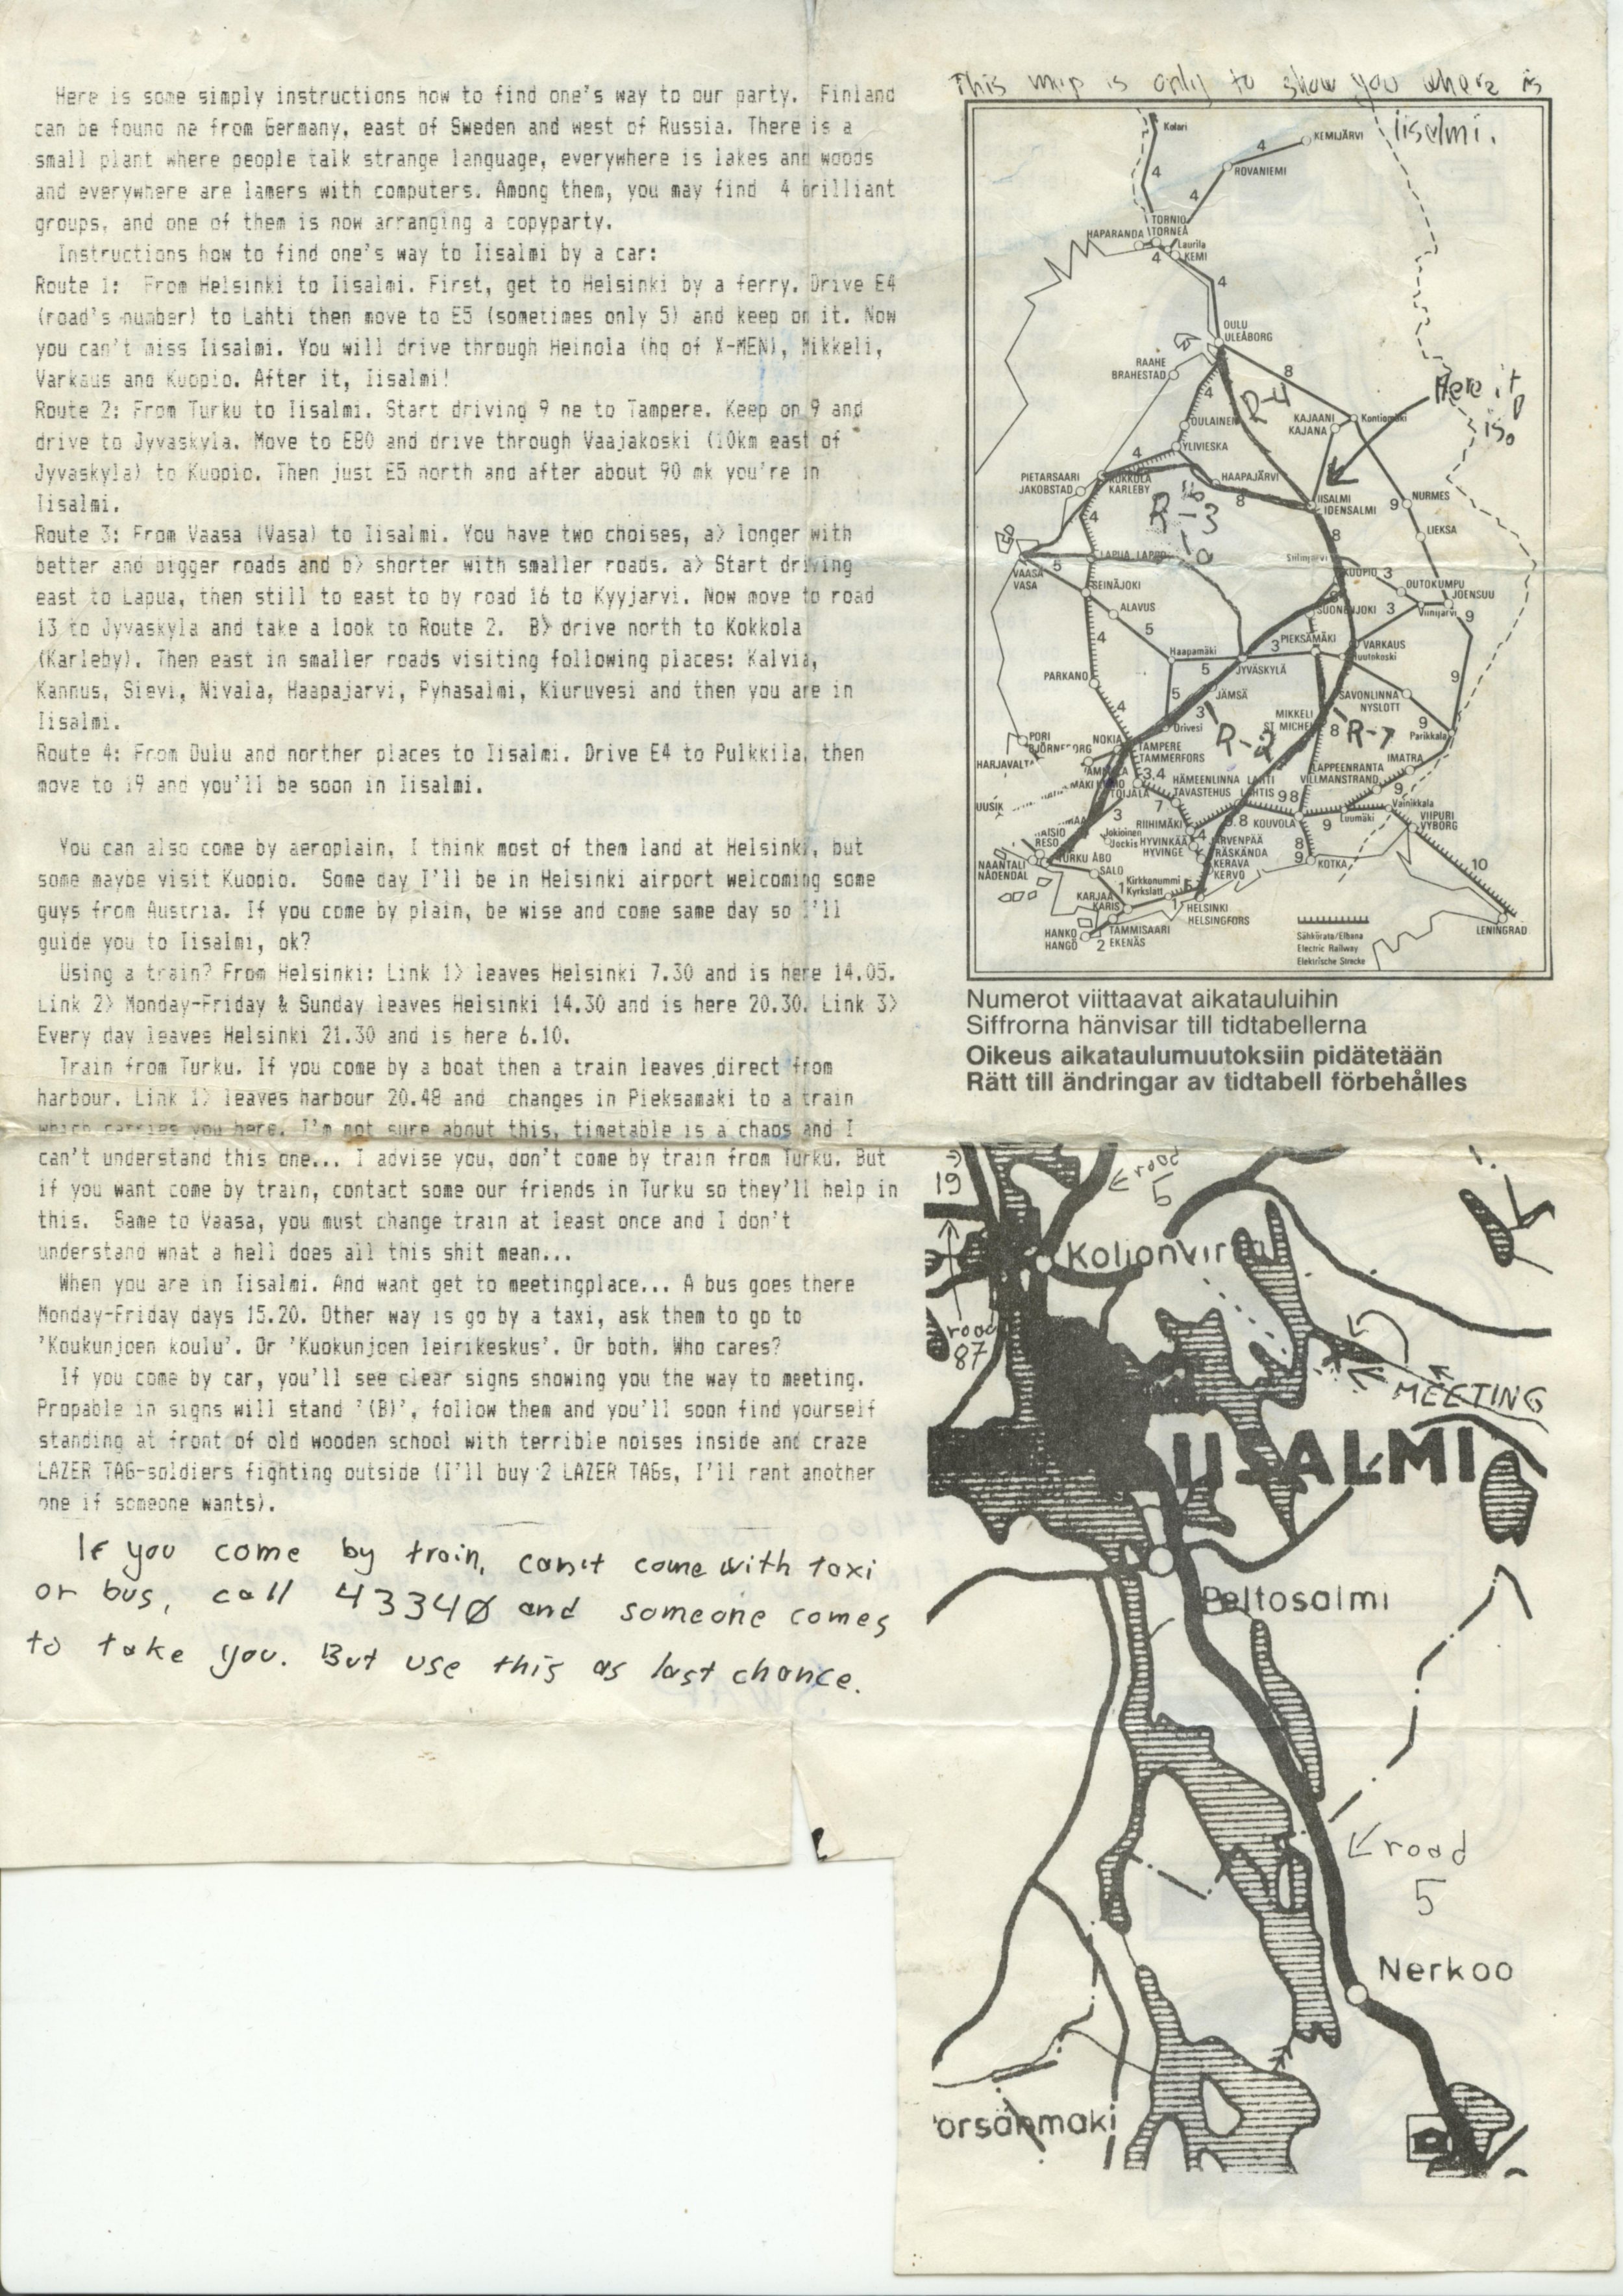 Here is some simply instructions how to find one's way to our party. Finland
can be found ne from Germany, east of Sweden and west of Russia. There is a
small plant where people talk strange language, everywhere is lakes and woods
and everywhere are lamers with computers. Among them, you may find 4 brilliant
groups, and one of them is now arranging a copyparty.
Instructions how to find one's way to Iisalmi by a car:
Route 1: From Helsinki to Iisalmi. First, get to Helsinki by a ferry. Drive E4
(road's number) to Lahti then move to E5 (sometimes only 5) and keep on it. Now
you can't miss Iisalmi. You will drive through Heinola (hq of X-MEN), Mikkeli,
Varkaus and Kuopio. After it, Iisalmi!
Route 2: From Turku to Iisalmi. Start driving 9 ne to Tampere. Keep on 9 and
drive to Jyvaskyla. Move to E80 and drive through Vaajakoski (10km east of
Jyvaskyla) to Kuopio. Then just E5 north and after about 90 mk you're in
Iisalmi.
Route 3: From Vaasa (Vasa) to Iisalmi. You have two choises, a> longer with
better and bigger roads and b> shorter with smaller roads. a> Start driving
east to Lapua, then still to east to by road 16 to Kyyjarvi. Now move to road
13 to Jyvaskyla and take a look to Route 2. B> drive north to Kokkola
(Karleby). Then east in smaller roads visiting following places: Kalvia,
Kannus, Sievi, Nivala, Haapajarvi, Pyhasalmi, Kiuruvesi and then you are in
Iisalmi.
Route 4: From Oulu and norther places to Iisalmi. Drive E4 to Pulkkila, then
move to 19 and you'll be soon in Iisalmi.
You can also come by aeroplain. I think most of them land at Helsinki, but
some maybe visit Kuopio. Some day I'll be in Helsinki airport welcoming some
guys from Austria. If you come by plain, be wise and come same day so I'll
guide you to Iisalmi, ok?
Using a train? From Helsinki: Link 1> leaves Helsinki 7.30 and is here 14.05.
Link 2> Monday-Friday & Sunday leaves Helsinki 14.30 and is here 20.30. Link 3>
Every day leaves Helsinki 21.30 and is here 6.10.
Train from Turku. If you come by a boat then a train leaves direct from
harbour. Link 1> leaves harbour 20.48 and changes in Pieksamaki to a train
which carries you here. I'm not sure about this, timetable is a chaos and I
can't understand this one... I advise you, don't come by train from Turku. But
if you want come by train, contact some our friends in Turku so they'll help in
this. Same to Vaasa, you must change train at least once and I don't
understand what a hell does all this shit mean...
When you are in Iisalmi. And want get to meetingplace... A bus goes there
Monday-Friday days 15.20. Other way is go by a taxi, ask them to go to
'Koukunjoen koulu'. Or 'Kuokunjoen leirikeskus'. Or both. Who cares?
If you come by car, you'll see clear signs showing you the way to meeting.
Propable in signs will stand '(B)', follow them and you'll soon find yourself
standing at front of old wooden school with terrible noises inside and craze
LAZER TAG-soldiers fighting outside (I'll buy 2 LAZER TAGs, I'll rent another
one if someone wants).
If you come by train, can't come with taxi
or bus, call 43340 and someone comes
to take you. But use this as last chance.
This map is only to show you where is
Iisalmi.
Kolari
4
KEMIJÄRVI
4
ROVANIEMI
4
TORNIO
HAPARANDA TORNEÅ
Laurila
4 KEMI
4
OULU
ULEÅBORG
RAAHE
BRAHESTAD
8
R-4
Here it
is.
OULAINEN
KAJAANI
KAJANA
Kontiomäki
YLIVIESKA
4
PIETARSAARI
JAKOBSTAD
KOKKOLA
KARLEBY
HAAPAJÄRVI
8
IISALMI
IDENSALMI
9 NURMES
R-3
b
a
4
LIEKSA
8
Siilinjärvi
LAPUA LAPPO
5
VAASA
VASA
SEINÄJOKI
KUOPIO 3
OUTOKUMPU
JOENSUU
ALAVUS
SUONENJOKI 3 Viinijärvi
9
5
4
Haapamäki
3 PIEKSÄMÄKI
VARKAUS
Huutokoski
5
JYVÄSKYLÄ
PARKANO
5 JÄMSÄ
SAVONLINNA
NYSLOTT
9
4
3
Orivesi
R-2
MIKKELI
ST MICHEL
8 R-1
9
Parikkala
PORI
BJÖRNEBORG
NOKIA
TAMPERE
TAMMERFORS
HARJAVALTA
IMATRA
LAPPEENRANTA
VILLMANSTRAND
3,4
HÄMEENLINNA
TAVASTEHUS
LAHTI
LAHTIS
9 8
9
TOIJALA
7
Vainikkala
UUSIK
3
RIIHIMÄKI
9.8 KOUVOLA
9 Luumäki
VIIPURI
VYBORG
Jokioinen
Jockis
HYVINKÄÄ
HYVINGE
4
JÄRVENPÄÄ
TRÄSKÄNDA
KERAVA
KERVO
8
9 KOTKA
10
RAISIO
RESO
NAANTALI
NÅDENDAL
TURKU ÅBO
SALO
Kirkkonummi
Kyrkslätt
KARJAA
KARIS
1
HELSINKI
HELSINGFORS
HANKO
HANGÖ
2
TAMMISAARI
EKENÄS
Sähkörata/Elbana
Electric Railway
Elektrische Strecke
LENINGRAD
Numerot viittaavat aikatauluihin
Siffrorna hänvisar till tidtabellerna
Oikeus aikataulumuutoksiin pidätetään
Rätt till ändringar av tidtabell förbehålles
19
road
5
Koljonvirta
road
87
MEETING
IISALMI
Peltosalmi
road
5
Nerkoo
orsänmäki